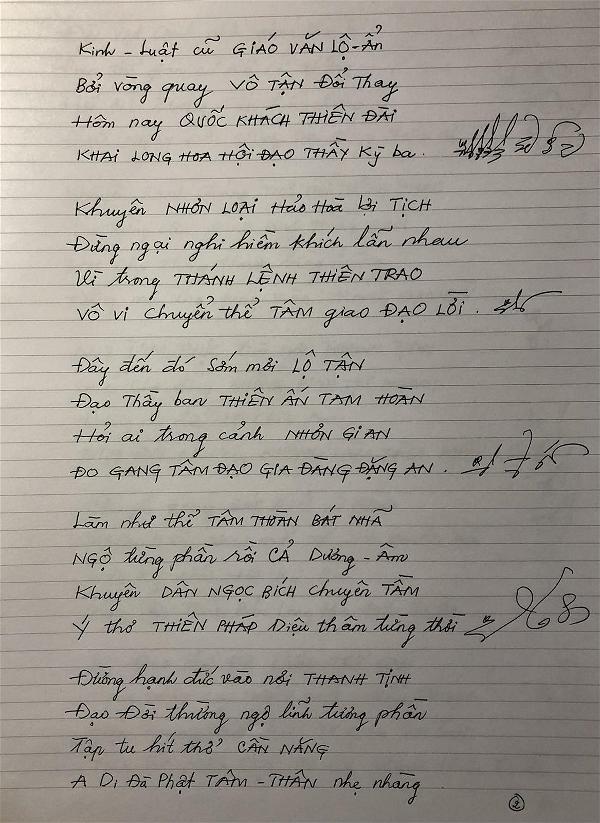 Kinh - Luật cũ GIÁO VĂN LỘ-ẨN
Bởi vòng quay VÔ TẬN Đổi Thay
Hôm nay QUỐC KHÁCH THIÊN ĐÀI
KHAI LONG HOA HỘI ĐẠO THẦY Kỳ ba.
Khuyên NHƠN LOẠI Hảo Hoà TỊCH
Đừng ngại nghi hiềm khích lẫn nhau
Vì trong THÁNH LỆNH THIÊN TRAO
VÔ vi chuyển thể TÂM giao ĐẠO LỜI.
Đây đến đó sớm mới LỘ TẬN
Đạo Thầy ban THIÊN ẤN TAM HOÀN
Hỏi ai trong cảnh NHƠN GIAN
ĐO GANG TẤM ĐẠO GIA ĐÀNG ĐẶNG AN.
Làm như thể TÂM THOÀN BÁT NHÃ
NGỘ từng phần rồi CẢ Dương - Âm
Khuyên DÂN NGỌC BÍCH chuyên TẦM
Ý thơ THIÊN PHÁP Diệu thâm từng thời
Đường hạnh đức vào nơi THANH TỊNH
Đạo Đời thường ngộ lĩnh tương phần
Tập tu hít thở CẦN NĂNG
A Di Đà Phật TÂM - THÂN nhẹ nhàng.
2